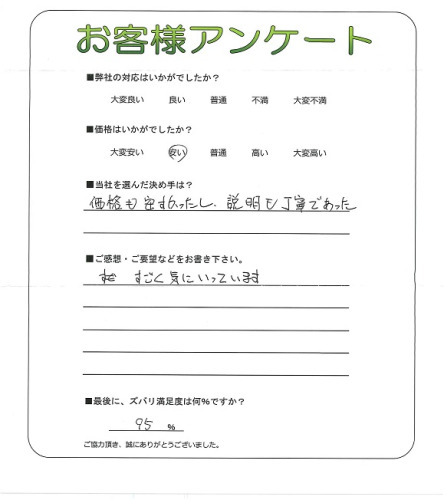 お客様アンケート
■弊社の対応はいかがでしたか？
大変良い 良い 普通 不満 大変不満
■価格はいかがでしたか？
大変安い 安い 普通 高い 大変高い
■当社を選んだ決め手は？
価格も安かったし、説明も丁寧であった
■ご感想・ご要望などをお書き下さい。
すごく気にいっています
■最後に、ズバリ満足度は何%ですか？
95 %
ご協力頂き、誠にありがとうございました。